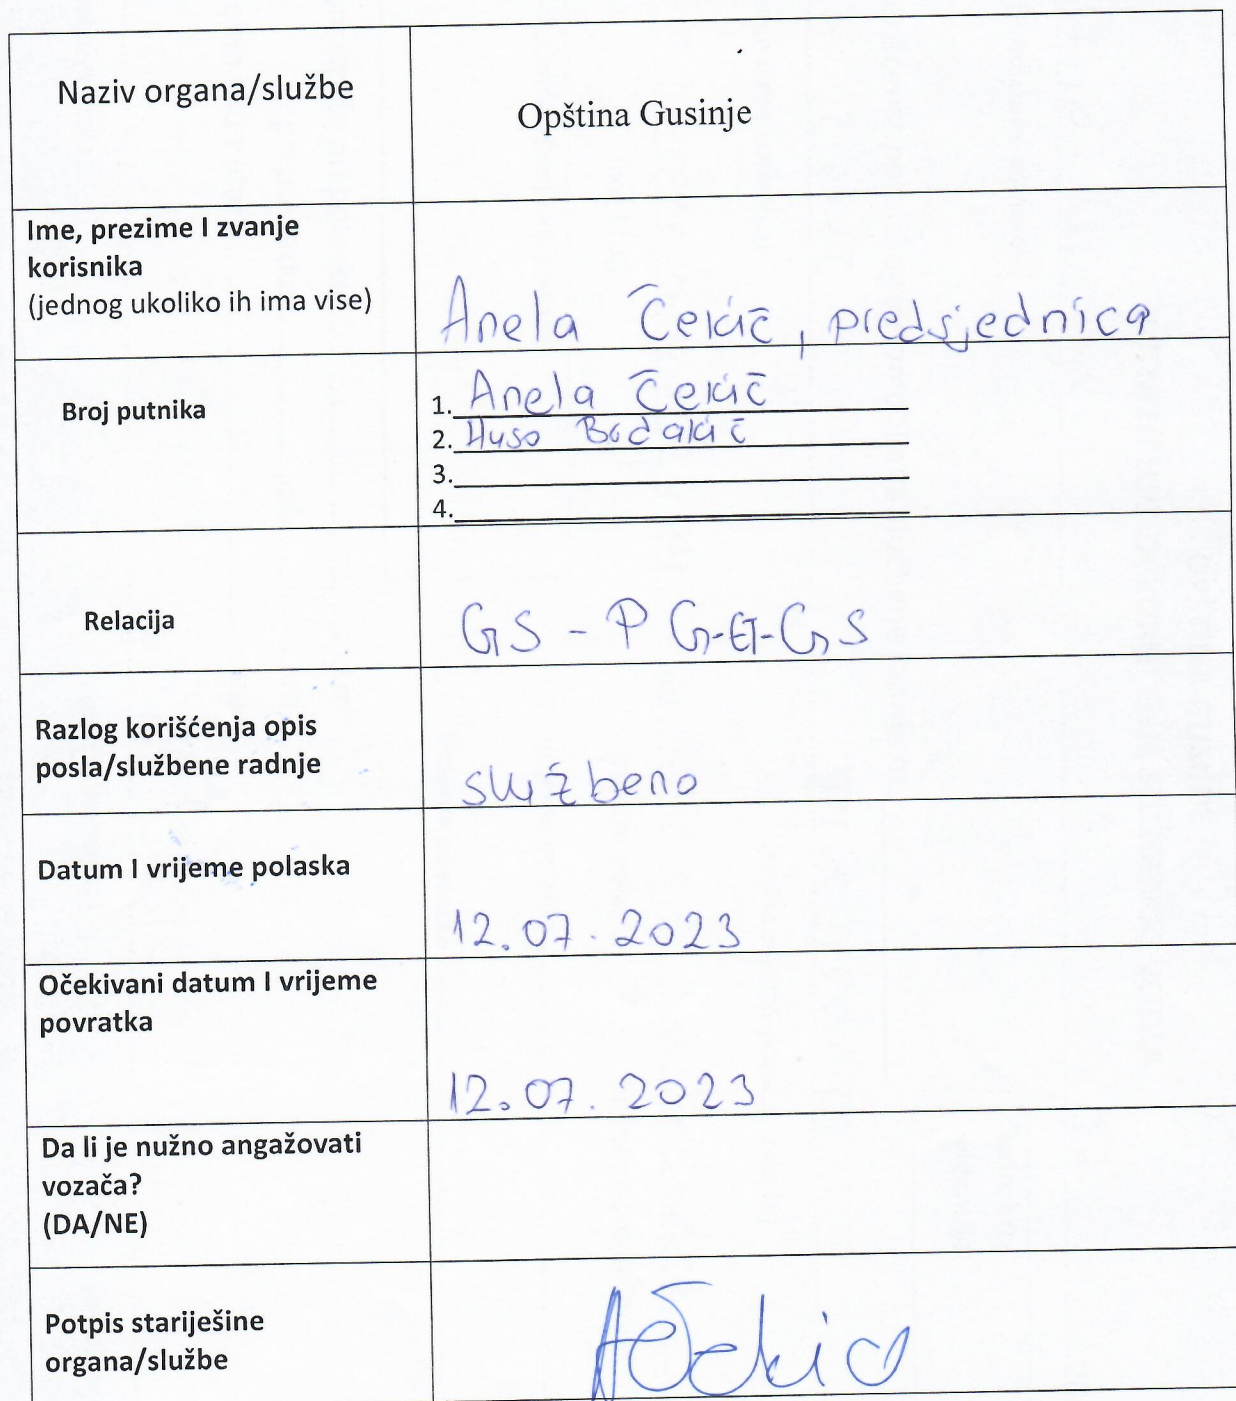 Naziv organa/službe
Opština Gusinje
Ime, prezime I zvanje
korisnika
(jednog ukoliko ih ima vise)
Anela Čekić, predsjednica
Broj putnika
1. Anela Čekić
2. Huso
3.
4.
Relacija
GS - PG
Razlog korišćenja opis
posla/službene radnje
službeno
Datum I vrijeme polaska
12.07.2023
Očekivani datum I vrijeme
povratka
12.07.2023
Da li je nužno angažovati
vozača?
(DA/NE)
Potpis starješine
organa/službe
AČekić